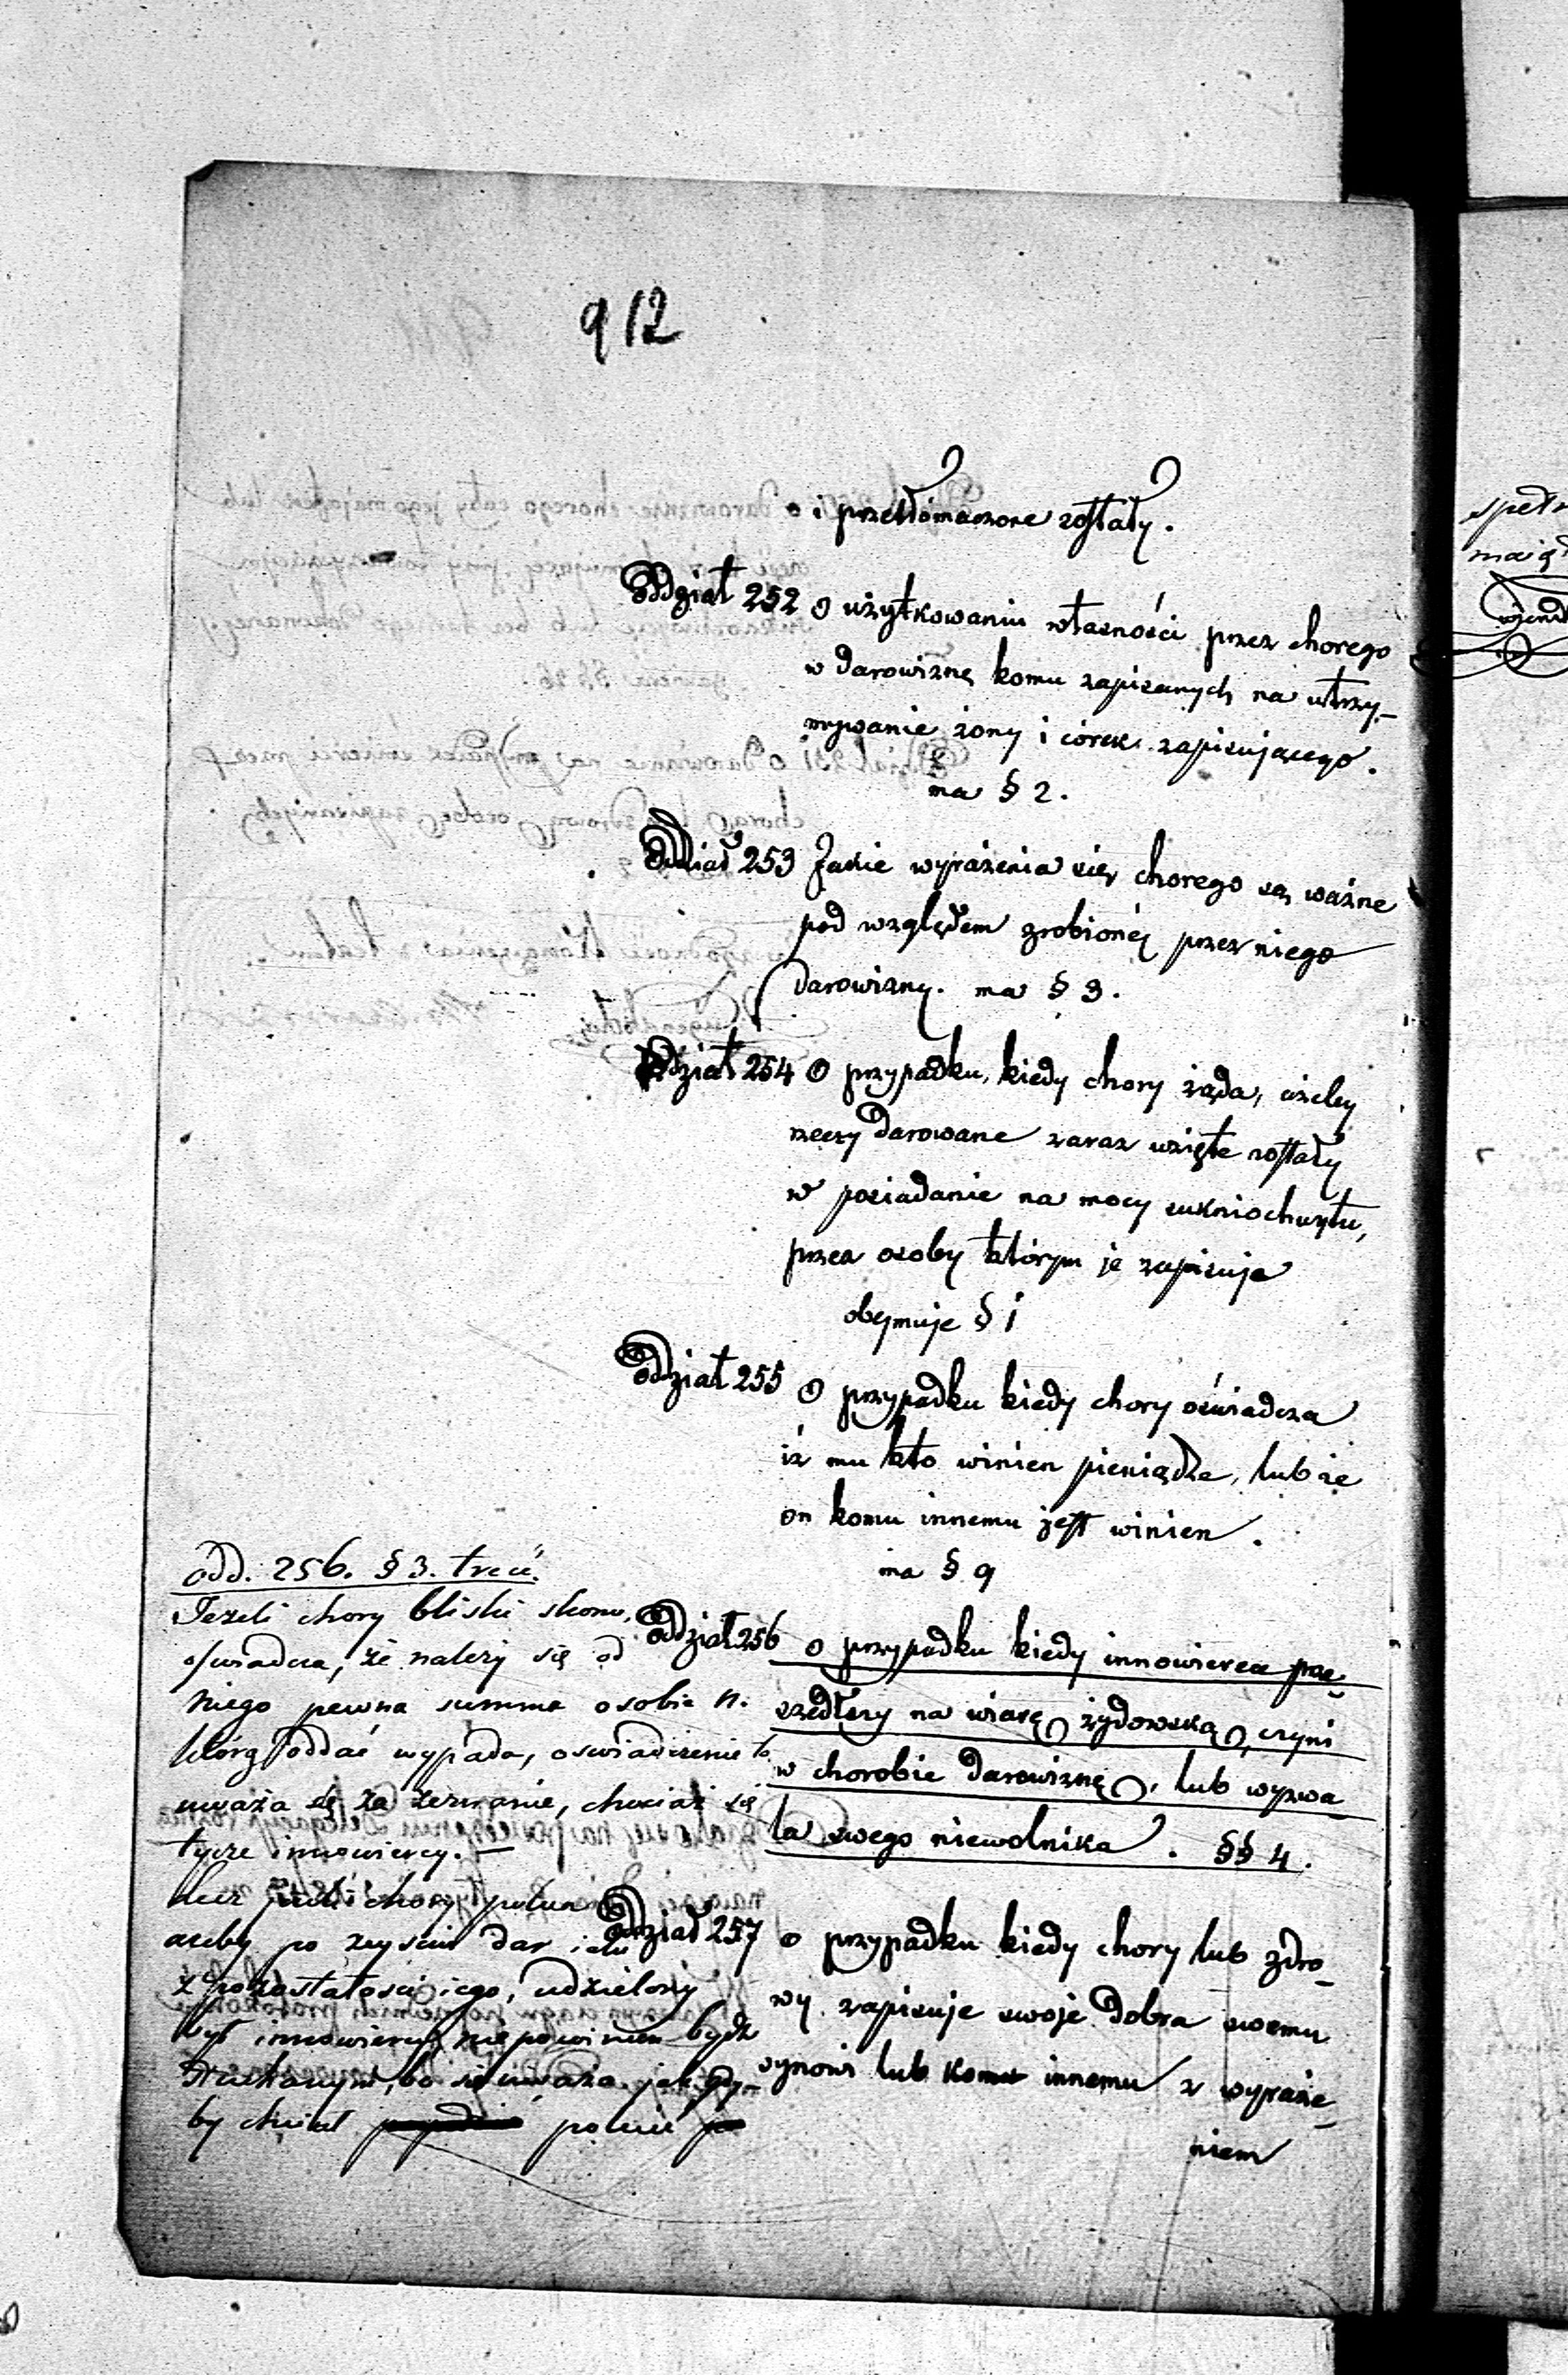 912
i przetłómaczone zostały.
Oddział 252 O użytkowaniu własności przez chorego
w darowiznę komu zapisanych na utrzy-
mywanie żony i córek zapisującego.
ma § 2.
Oddział 253 Jakie wyrażenia się chorego są ważne
pod względem zrobionéj przez niego
darowizny. ma § 3.
Oddział 254 O przypadku, kiedy chory żąda, ażeby
rzeczy darowane zaraz wzięte zostały
w posiadanie na mocy sukniochwytu,
przez osoby którym je zapisuje
obejmuje § 1
Oddział 255 O przypadku kiedy chory oświadcza
iż mu kto winien pieniądze, lub że
on komu innemu jest winien.
ma § 9
Oddział 256 o przypadku kiedy innowierca prze-
szedłszy na wiarę żydowską, czyni
w chorobie darowiznę, lub wyzwa-
la swego niewolnika. §§ 4.
Oddział 257 o przypadku kiedy chory lub zdro-
wy zapisuje swoje dobra swemu
synowi lub komu innemu z wyraże-
niem
odd. 256. § 3. treść.
Jeżeli chory bliski skonu,
oswiadcza, że należy się od
niego pewna summa osobie n.
którą oddać wypada, oswiadczenie to
uważa się za zeznanie, chociaż się
tycze innowiercy. —
lecz jeżeli chory poleca
aeby po zejściu dar jaki
z pozostałości jego, udzielony
był innowiercy, nie powinien bydź
słuchanym, bo się uważa jak gdy-
by chciał
<br>